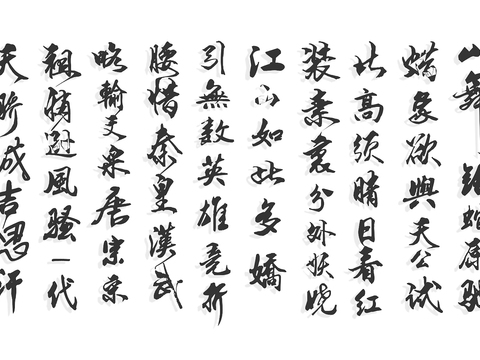 山舞銀蛇原馳
蜡象欲與天公試
比高須晴日看紅
裝素裹分外妖嬈
江山如此多嬌
引無數英雄竞折
腰惜秦皇漢武
略輸文采唐宗宋
祖稍遜風騷一代
天骄成吉思汗